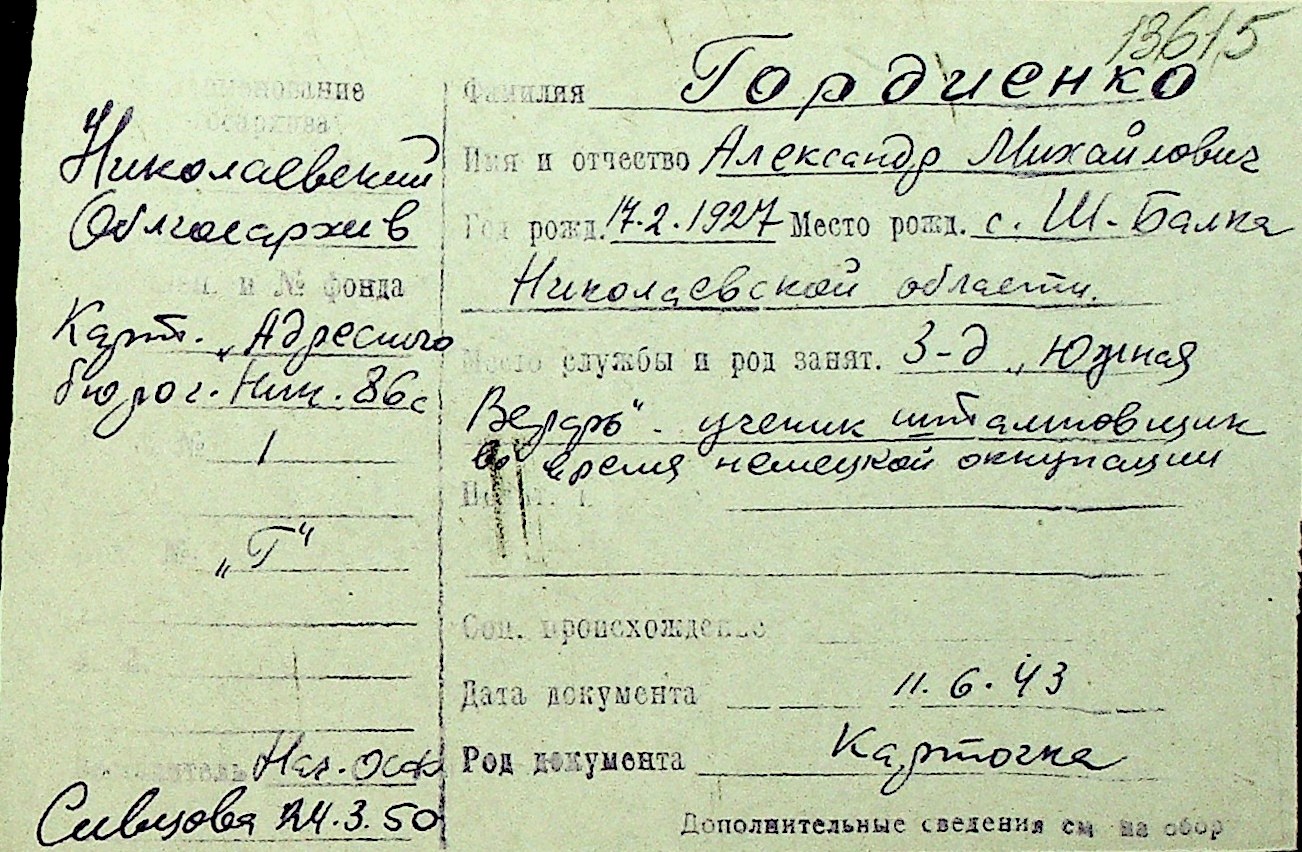 13615
Наименование
госархива
Николаевский
Облгосархив
и № фонда
Карт. „Адресного
бюро г. Ник. 86с
№ 1
№. „Г“
Нач. ОСФ
Сивцова 24.3.50
Фамилия Гордиенко
Имя и отчество Александр Михайлович
Год рожд. 17.2.1927 Место рожд. с. Ш-Балка
Николаевской области.
Место службы и род занят. З-д „Южная
Верфь“ - ученик штамповщик
во время немецкой оккупации
Соц. происхождение
Дата документа 11.6.43
Род документа Карточка
Дополнительные сведения см на обор